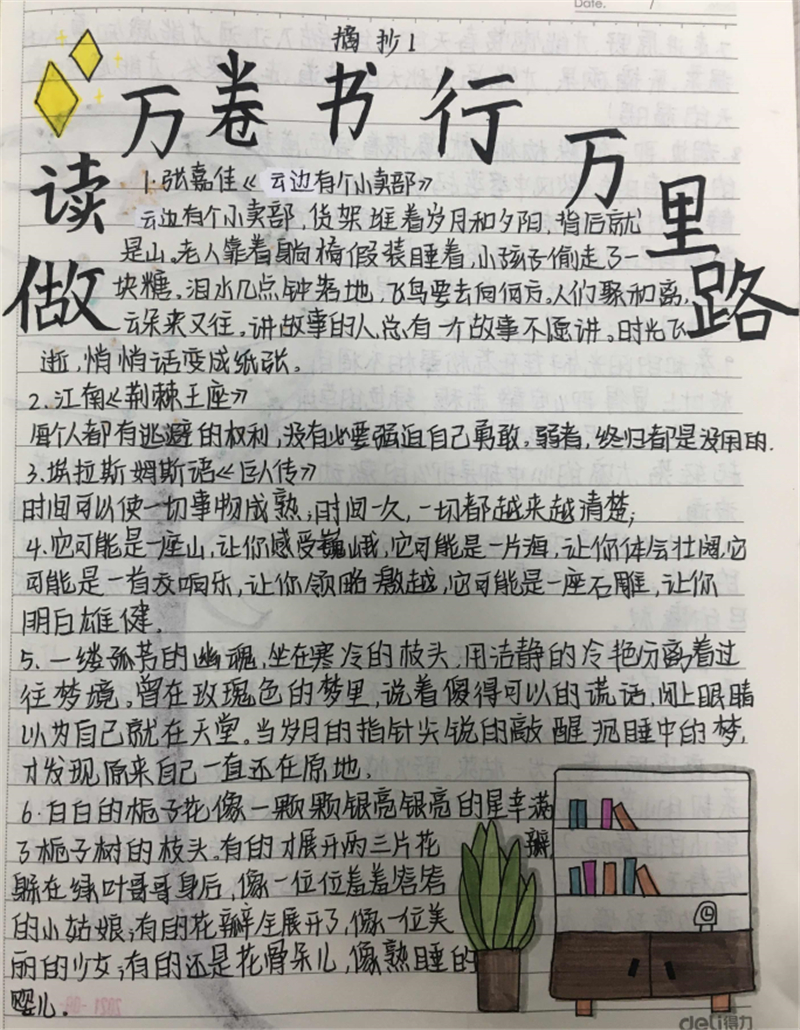 Date.
摘抄1
读万卷书行万里路
做
1.张嘉佳《云边有个小卖部》
云边有个小卖部,货架堆着岁月和夕阳,背后就
是山。老人靠着躺椅假装睡着,小孩子偷走了一
块糖。泪水几点钟落地,飞鸟要去向何方,人们聚和离,
云朵来又往。讲故事的人,总有一个故事不愿讲。时光飞
逝,悄悄话变成纸张。
2.江南《荆棘王座》
每个人都有逃避的权利,没有必要强迫自己勇敢。弱者,终归都是没用的.
3.埃拉斯姆斯语《巨人传》
时间可以使一切事物成熟;时间一久,一切都越来越清楚;
4.它可能是一座山,让你感受巍峨,它可能是一片海,让你体会壮阔,它
可能是一首交响乐,让你领略激越,它可能是一座石雕,让你
明白雄健.
5.一缕孤芳的幽魂,坐在寒冷的枝头,用洁静的冷艳分离着过
往梦境。曾在玫瑰色的梦里,说着傻得可以的谎话,闭上眼睛
以为自己就在天堂。当岁月的指针尖锐的敲醒沉睡中的梦,
才发现原来自己一直还在原地。
6.白白的栀子花像一颗颗银亮银亮的星幸满
了栀子树的枝头。有的才展开两三片花瓣,
躲在绿叶哥哥身后,像一位位羞羞答答
的小姑娘;有的花瓣全展开了,像一位美
丽的少女;有的还是花骨朵儿,像熟睡的
婴儿.
deli得力